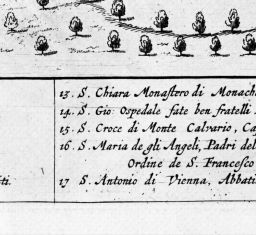 13. S. Chiara Monastero di Monach
14. S. Gio Ospedale fate ben fratelli
15. S. Croce di Monte Calvario, Ca
16. S. Maria de gli Angeli, Padri del
Ordine de S. Francesco
ti. 17 S. Antonio di Vienna, Abbati